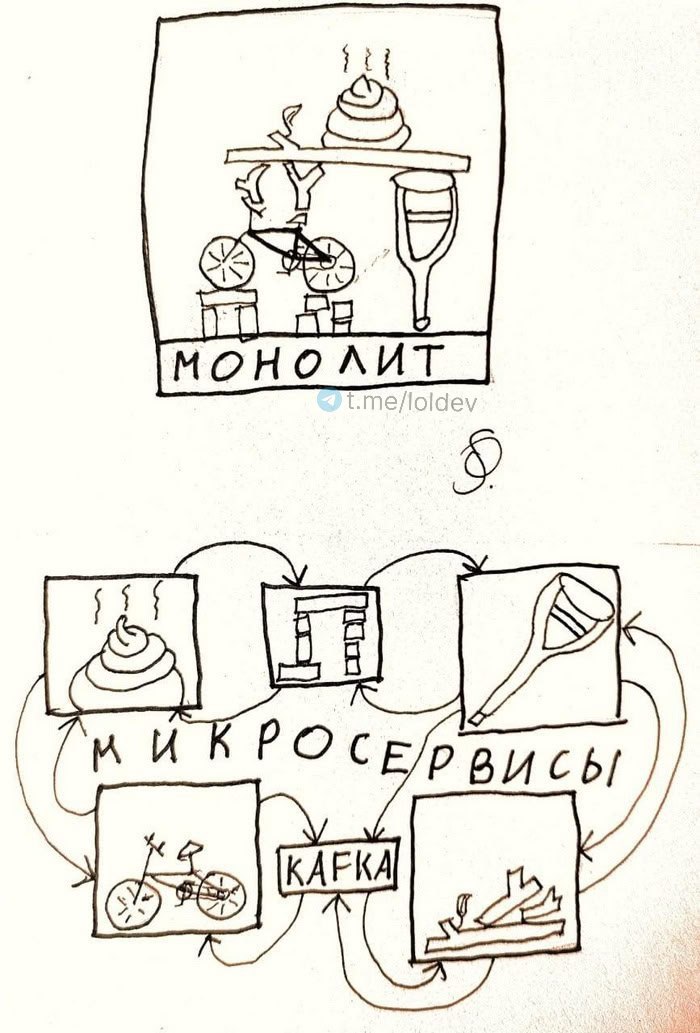 МОНОЛИТ
t.me/loldev
МИКРОСЕРВИСЫ
KAFKA